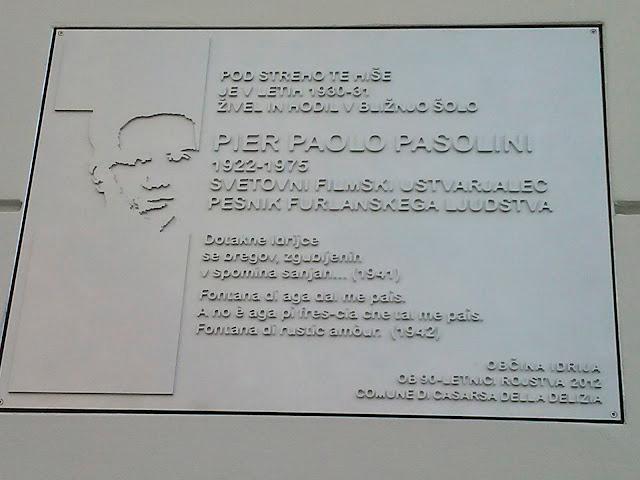 POD STREHO TE HIŠE
JE V LETIH 1930-31
ŽIVEL IN HODIL V BLIŽNJO ŠOLO
PIER PAOLO PASOLINI
1922-1975
SVETOVNI FILMSKI USTVARJALEC
PESNIK FURLANSKEGA LJUDSTVA
Dotakne Idrijce
se bregov, zgubljenih
v spomina sanjah... (1941)
Fontana di aga dal me païs.
A no è aga pí fres-cia che tal me païs.
Fontana di rustic amòur. (1942)
OBČINA IDRIJA
OB 90-LETNICI ROJSTVA 2012
COMUNE DI CASARSA DELLA DELIZIA